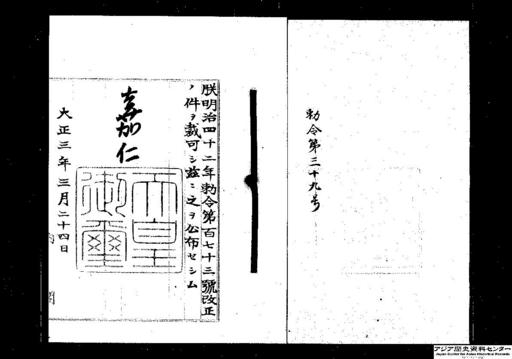 勅令第三十九号
朕明治四十二年勅令第百七十三號改正
ノ件ヲ裁可シ茲ニ之ヲ公布セシム
嘉仁
天皇御璽
大正三年三月二十四日
アジア歴史資料センター
Japan Center for Asian Historical Records